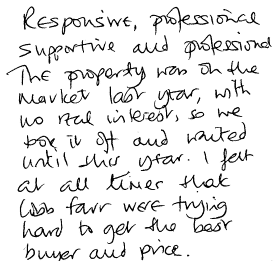 Responsive, professional
supportive and professional
The property was on the
market last year, with
no real interest, so we
took it off and waited
until this year. I felt
at all times that
Cobb Farr were trying
hard to get the best
buyer and price.